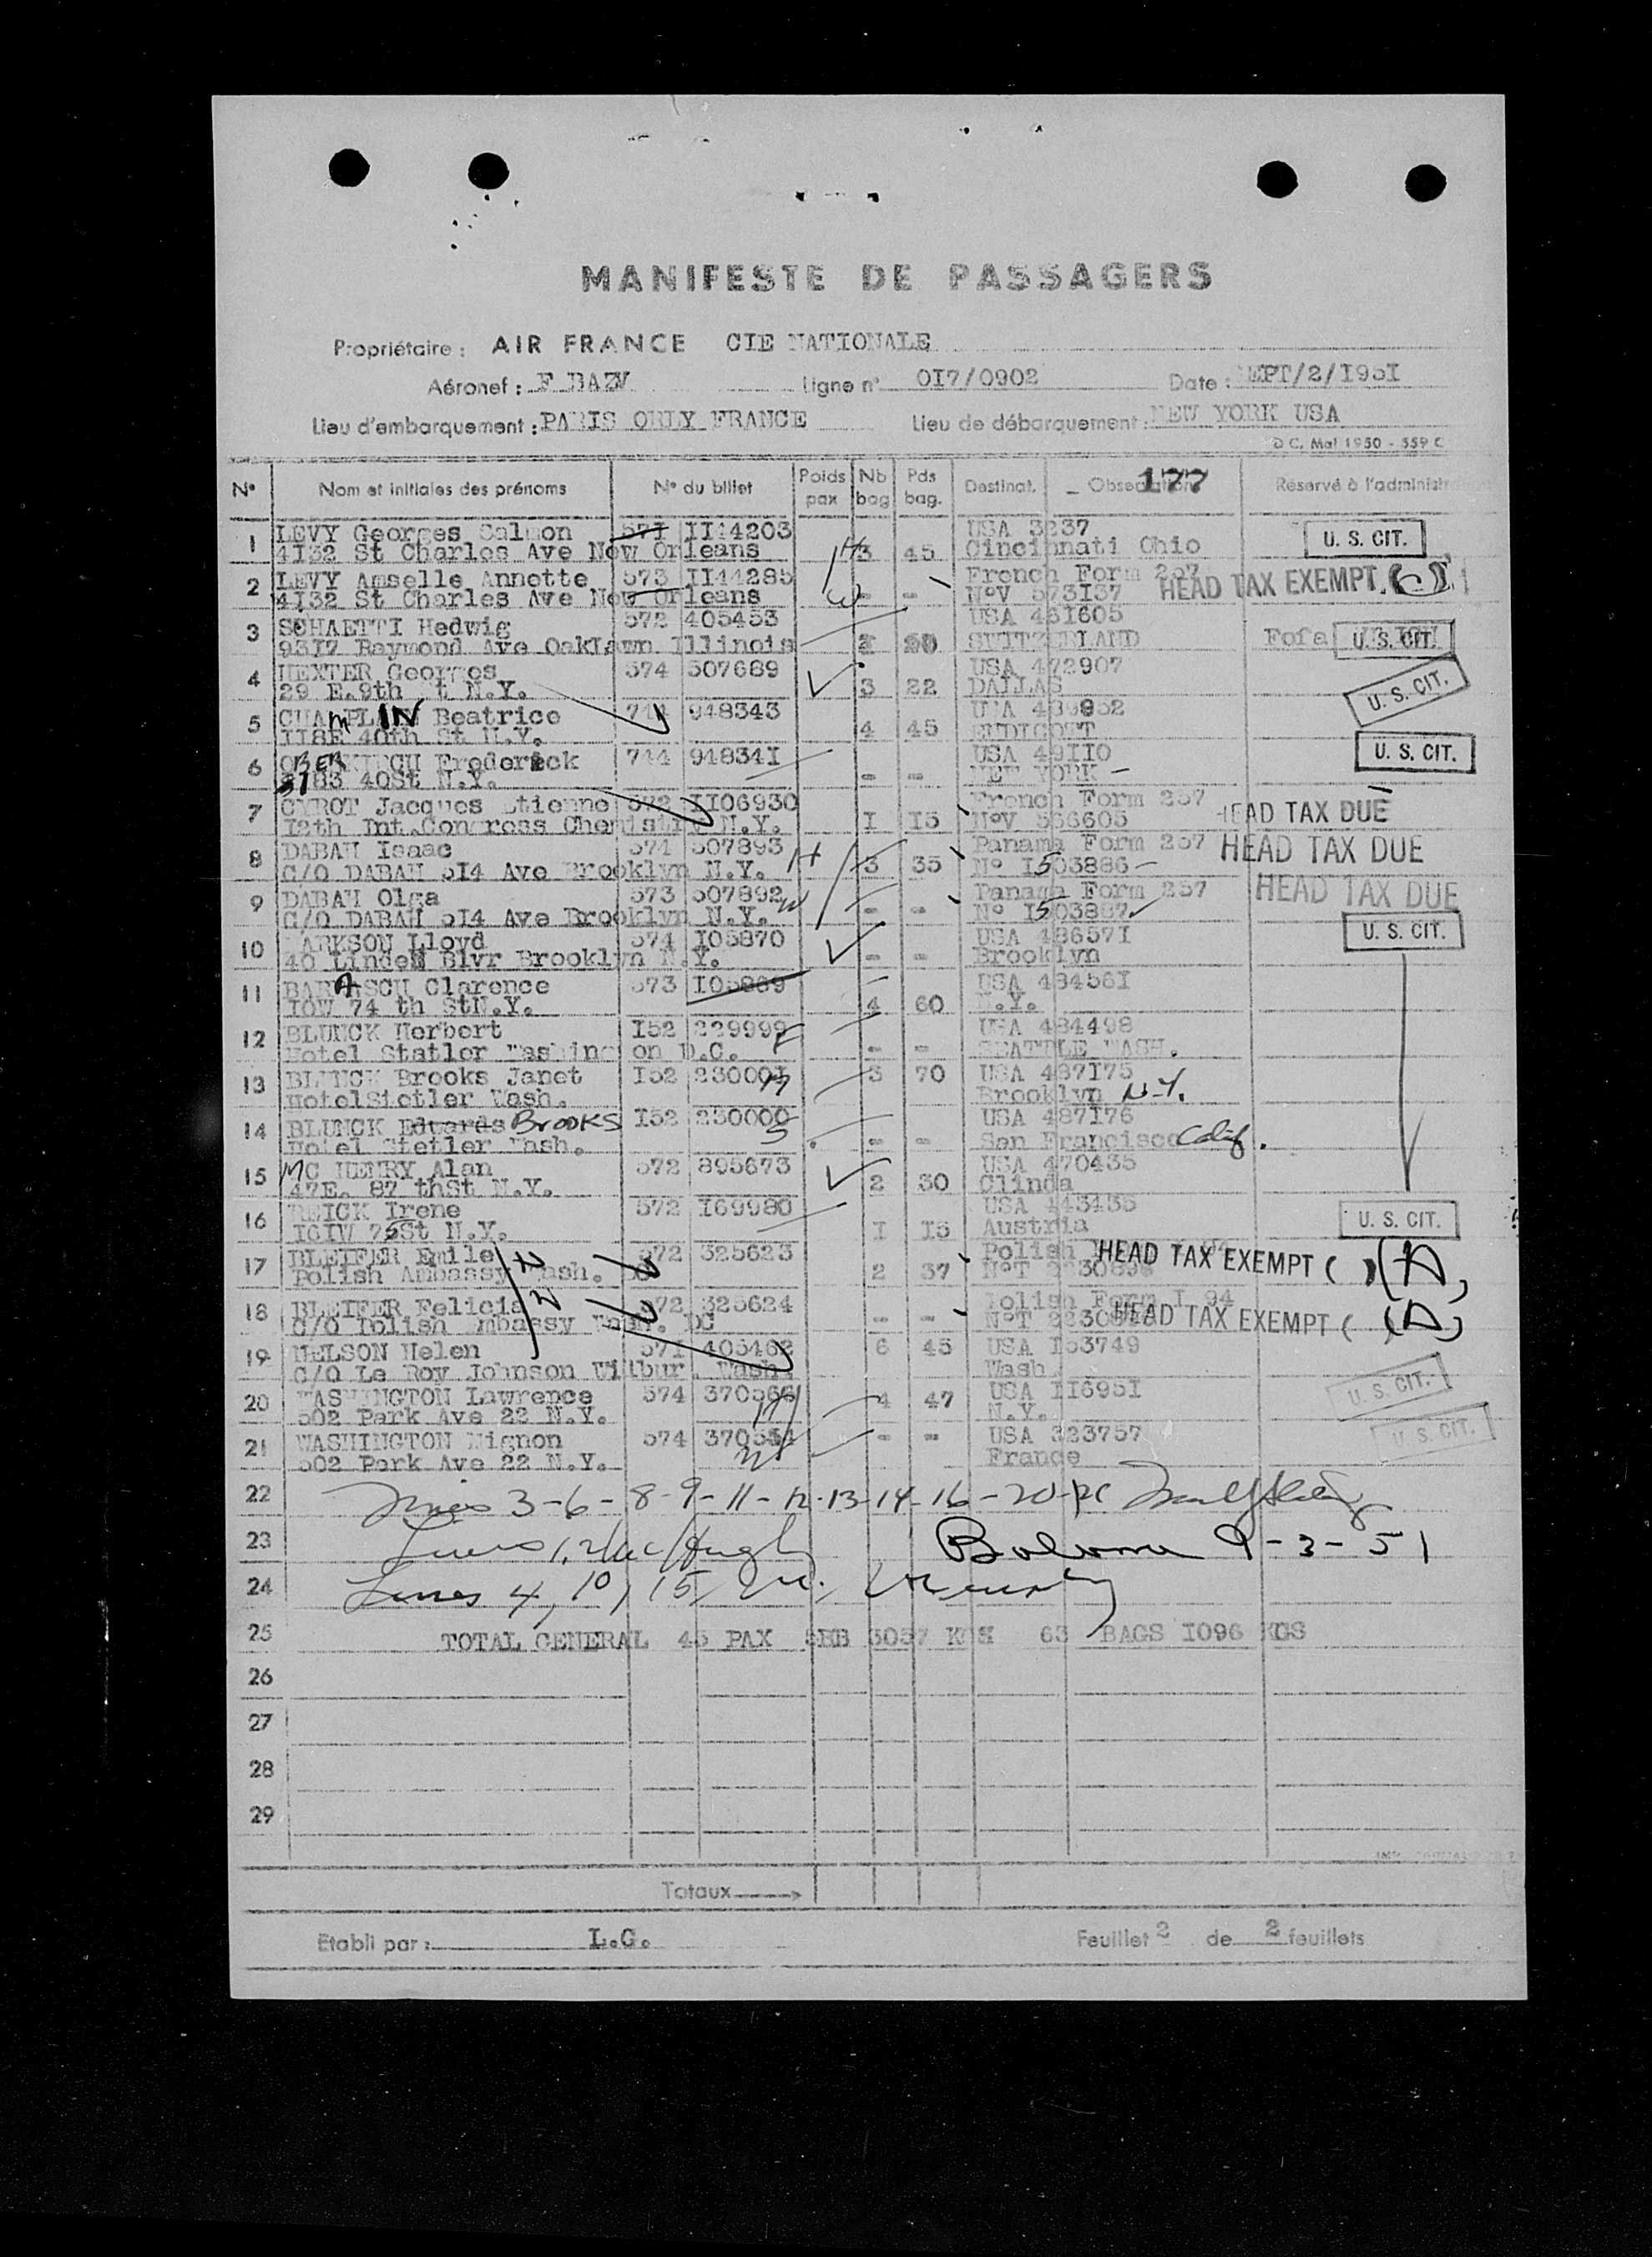 MANIFESTE DE PASSAGERS
Propriétaire : AIR FRANCE CIE NATIONALE
Aéronef : F BAZV Ligne n° OI7/0902 Date : EPT/2/I95I
Lieu d'embarquement : PARIS ORLY FRANCE Lieu de débarquement : NEW YORK USA
D C, Mat 1950 - 559 C
N° Nom et initiales des prénoms N° du billet Poids pax Nb bag Pds bag. Destinat. Observation 177 Réservé à l'administration
1 LEVY Georges Salmon 57I II44203 USA 3237 U. S. CIT.
4I32 St Charles Ave New Orleans H 3 45 Cincinnati Ohio
2 LEVY Amselle Annette 573 II44285 French Form 257 HEAD TAX EXEMPT
4I32 St Charles Ave New Orleans W - - N°V 573I37
3 SCHAETTI Hedwig 572 405453 USA 461605
93I7 Raymond Ave OakLawn Illinois 20 SWITZERLAND U. S. CIT.
4 HEXTER Georges 574 507689 USA 472907
29 E.9th t N.Y. 3 22 DALLAS U. S. CIT.
5 CHAMPLAIN Beatrice 744 948343
II8E 40th St N.Y. 4 45 ENDICOTT
6 OBERKIRCH Frederick 744 94834I USA 49II0 U. S. CIT.
3783 40St N.Y. - - NEW YORK -
7 CYROT Jacques Etienne 572 II06930 French Form 257 HEAD TAX DUE
I2th Int.Congress Chemistry N.Y. I I5 N°V 566605
8 DABAH Isaac 574 507893 H Panama Form 257 HEAD TAX DUE
C/O DABAH 5I4 Ave Brooklyn N.Y. 3 35 N° I503886 -
9 DABAH Olga 573 507892 W Panama Form 257 HEAD TAX DUE
C/O DABAH 5I4 Ave Brooklyn N.Y. - - N° I503887
10 ARKSON Lloyd 574 I05870 USA 48657I U. S. CIT.
40 Linden Blvr Brooklyn N.Y. - - Brooklyn
11 BARASCH Clarence 573 I05869 USA 48456I
I0W 74 th StN.Y. 4 60 N.Y.
12 BLUNCK Herbert I52 229999 USA 484498
Hotel Statler Washing on D.C. - - SEATTLE WASH.
13 BLUNCK Brooks Janet I52 23000I 3 70 USA 487I75
HotelStetler Wash. Brooklyn N.Y.
14 BLUNCK Edwards Brooks I52 230000 USA 487I76
Hotel Stetler Wash. - - San Francisco Calif.
15 MC HENRY Alan 572 895673 USA 470435
47E. 87 thSt N.Y. 2 30 Clinda
16 REICK Irene 572 I69980 USA 443435
I6IW 75St N.Y. I I5 Austria U. S. CIT.
17 BLEIFER Emile 572 325623 Polish HEAD TAX EXEMPT ( ) (A)
Polish Ambassy Wash. 2 37
18 BLEIFER Felicia 572 325624 Polish Form I 94
C/O Polish mbassy Wash. DC - - HEAD TAX EXEMPT ( ) (A)
19 NELSON Helen 57I 405462 6 45 USA I53749
C/O Le Roy Johnson Wilbur Wash. Wash.
20 WASHINGTON Lawrence 574 370566 4 47 USA II695I U. S. CIT.
502 Park Ave 22 N.Y. N.Y.
21 WASHINGTON Mignon 574 - - USA 323757 U. S. CIT.
502 Park Ave 22 N.Y. France
22 Lines 3-6-8-9-11-12-13-14-16-20-21
23 Lines 1, 2 9-3-51
24 Lines 4, 10, 15
25 TOTAL GENERAL 45 PAX 3057 KGS 63 BAGS I096 KGS
26
27
28
29
Totaux
Etabli par : L.G. Feuillet 2 de 2 feuillets